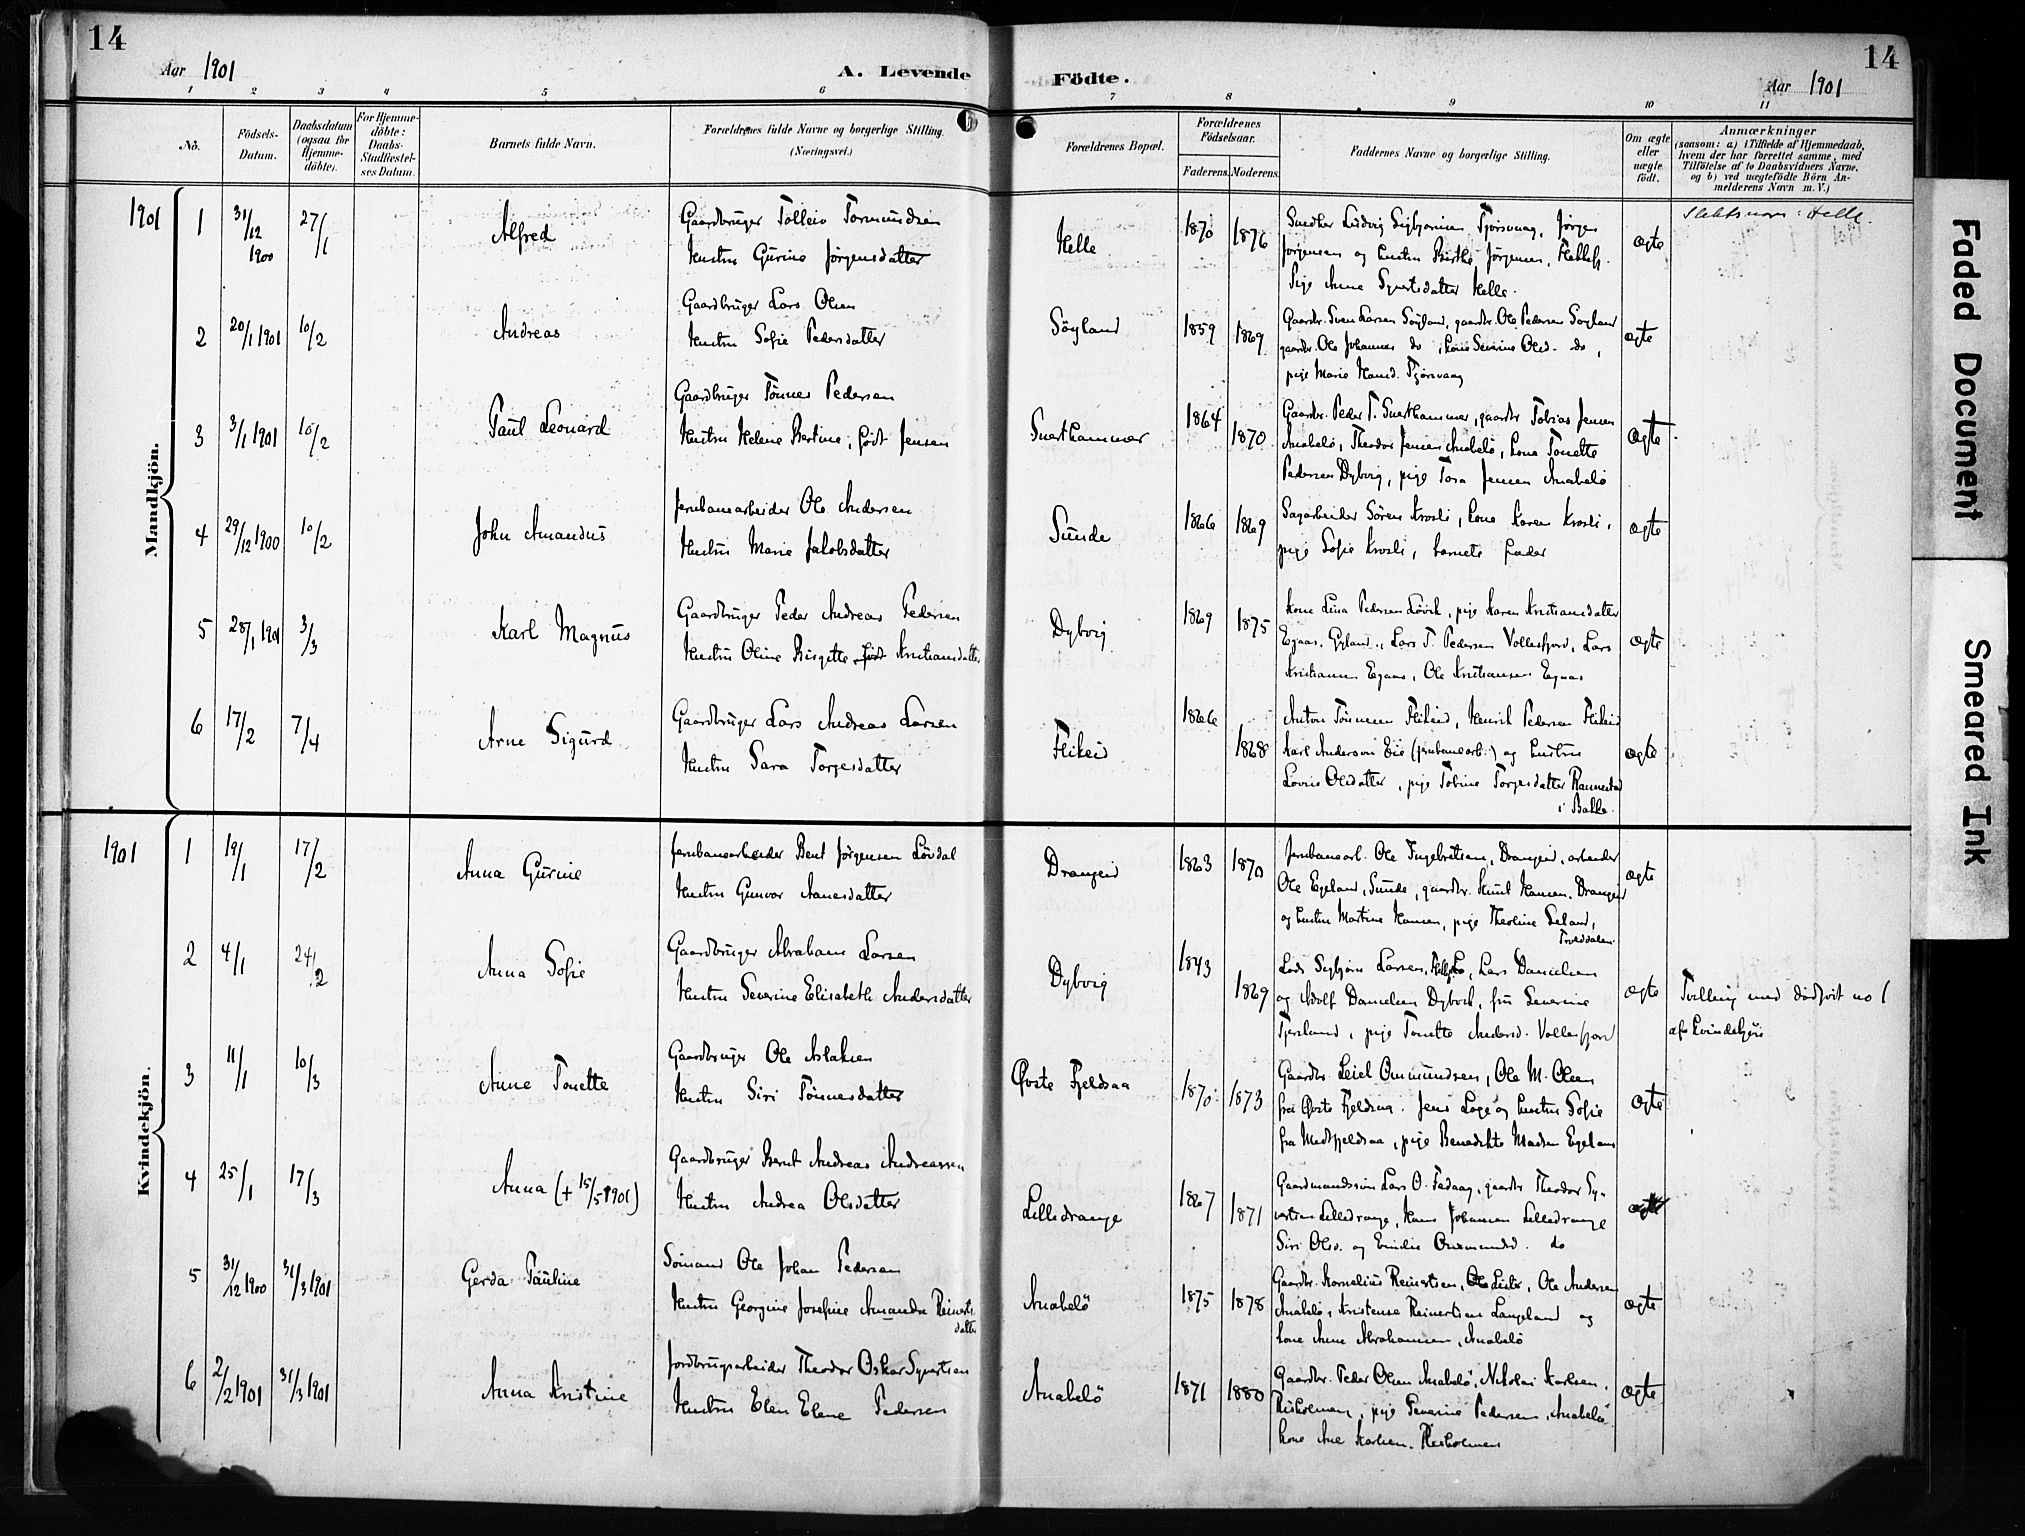 14
Aar 1901
A. Levende Födte.
Aar 1901
14
1 2 3 4 5 6 7 8 9 10 11
No.
Födsels-Datum.
Daabsdatum (ogsaa for Hjemme-döbte).
For Hjemme-döbte: Daabs-Stadfæstel-ses Datum.
Barnets fulde Navn.
Forældrenes fulde Navne og borgerlige Stilling. (Næringsvei.)
Forældrenes Bopæl.
Forældrenes Födselsaar.
Faderens. Moderens.
Faddernes Navne og borgerlige Stilling.
Om ægte eller uægte født.
Anmærkninger
(saasom: a) i Tilfælde af Hjemmedaab, hvem der har forrettet samme, med Tilföielse af to Daabsvidners Navne, og b) ved uægtefödte Börn An-melderens Navn m. V.)
Mandkjön.
1901 1 31/12 1900 27/1 Alfred
Gaardbruger Tolleiv Tormundsen
Hustru Gurine Jørgensdatter
Helle 1870 1876
Smedker Ludvig Sigbjørnsen Tjørsvaag, Jørgen
Jørgensen og hustru Birthe Jørgensen,
Pige Anne Syvertsdatter Helle.
ægte
Slektsnavn: Helle.
2 20/1 1901 10/2 Andreas
Gaardbruger Lars Olsen
Hustru Sofie Pedersdatter
Söyland 1859 1869
Gaardbr. Sven Larsen Söyland, gaardbr. Ole Pedersen Soyland
gaardbr. Ole Johannes do, kone Severine Olsd. do,
pige Marie Hansd. Tjørsvaag
ægte
3 3/1 1901 10/2 Paul Leonard
Gaardbruger Tönnes Pedersen
Hustru Helene Bertine, født Jensen
Sverthammer 1864 1870
Gaardbr. Peder T. Sverthammer, gaardbr Tobias Jensen
Anabelö, Theodor Jensen Anabelö, kone Tonette
Pedersen Dybvig, pige Tora Jensen Anabelö
ægte
4 29/12 1900 10/2 John Amandus
Jernbanearbeider Ole Andersen
Hustru Marie Jakobsdatter
Sunde 1866 1869
Sagarbeider Sören Krosli, kone Karen Krosli,
pige Sofie Krosli, barnets fader
ægte
5 28/1 1901 3/3 Karl Magnus
Gaardbruger Peder Andreas Pedersen
Hustru Oline Birgitte født Kristiansdatter
Dybvig 1869 1875
Kone Lina Pedersen Lövik, pige Karen Kristiansdatter
Egaas, Gyland, Lars T. Pedersen Vollesfjord, Lars
Kristiansen Egaas, Ole Kristiansen Egaas
ægte
6 17/2 7/4 Arne Sigurd
Gaardbruger Lars Andreas Larsen
Hustru Sara Torgesdatter
Flikeid 1866 1868
Anton Tönnesen Flikeid, Henrik Pedersen Flikeid
Karl Anderson Eie (jernbanearb.) og hustru
Lovise Olsdatter, pige Tobine Torgesdatter Rannestad
i Bakke.
ægte
Kvindekjön.
1901 1 19/1 17/2 Anna Gurine
Jernbanearbeider Bent Jørgensen Lövdal
Hustru Gunvor Aanesdatter
Drangeid 1863 1870
Jernbanearb. Ole Ingebretsen, Drangeid, arbeider
Ole Egeland, Sunde, gaardbr. Knut Hansen, Drangeid
og hustru Martine Hansen, pige Theoline Seland,
Trolddalen.
ægte
2 4/1 24/2 Anna Sofie
Gaardbruger Abraham Larsen
Hustru Severine Elisabeth Andersdatter
Dybvig 1843 1869
Lods Sigbjørn Larsen, Lars Danielsen
og Adolf Danielsen Dybvik, fru Severine
pige Tonette Andersd. Vollesfjord
ægte
Tvilling med dødfødt no 1
af Kvindekjön
3 11/1 10/3 Anne Tonette
Gaardbruger Ole Aslaksen
Hustru Siri Tönnesdatter
Øvste Fjeldsaa 1870 1873
Gaardbr. Leiel Ommundsen, Ole M. Olsen
fra Øvste Fjeldsaa. Jens Loge og hustru Sofie
fra Midtfjeldsaa, pige Benedikte Madsen Egeland
ægte
4 25/1 17/3 Anna (+ 15/5 1901)
Gaardbruger Bernt Andreas Andreassen
Hustru Andrea Olsdatter
Lilledrange 1867 1871
Gaardmandssön Lars O. Fedaag, gaardbr Theodor Sy-
vertsen Lilledrange, Hans Johansen Lilledrange
Siri Olsd. og Emilie Ommundsd. do
ægte
5 31/12 1900 31/3 1901 Gerda Pauline
Sömand Ole Johan Pedersen
Hustru Georgine Josefine Amanda Reinerts
datter
Anabelö 1875 1878
Gaardbr. Kornelius Reinertsen, Ole Andersen
Anabelö, Kristense Reinertsen Langeland og
kone Anne Abrahamsen, Anabelö
ægte
6 2/2 1901 31/3 1901 Anna Kristine
Jordbrugsarbeider Theodor Oskar Syvertsen
Hustru Elen Elene Pedersen
Anabelö 1871 1880
Gaardbr. Peder Olsen Anabelö, Nikolai Karlsen,
Risholmen, pige Severine Pedersen, Anabelö
kone Ane Karlsen, Risholmen
ægte
Faded Document
Smeared Ink